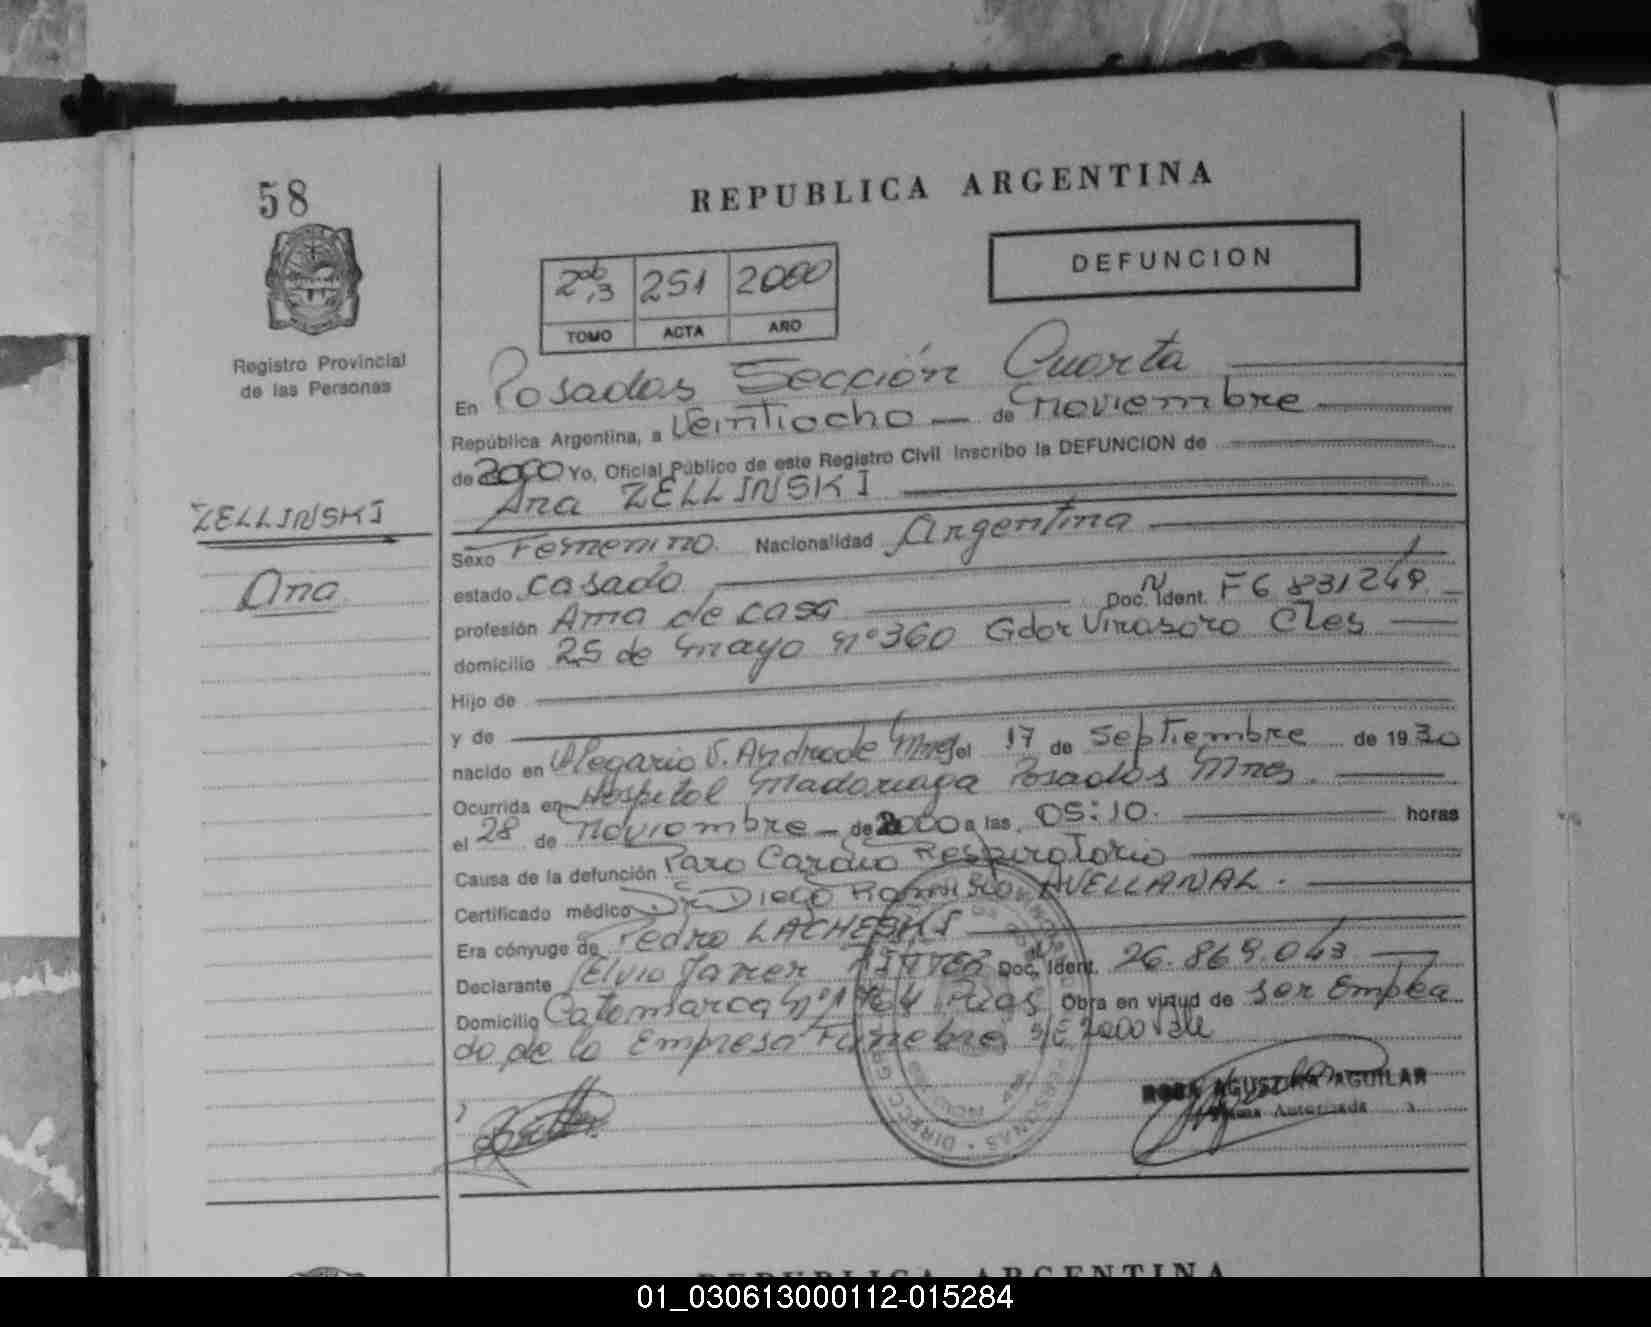 58
REPUBLICA ARGENTINA
DEFUNCION
251 2000
TOMO ACTA AÑO
Registro Provincial
de las Personas
En Posadas Sección Cuarta
República Argentina, a Veintiocho de noviembre
de 2000 Yo, Oficial Público de este Registro Civil Inscribo la DEFUNCION de
Ana ZELLINSKI
ZELLINSKI
Ana
Sexo Femenino. Nacionalidad Argentina
estado casado Doc. Ident. F6 831249
profesión Ama de casa
domicilio 25 de mayo nº 360 Gdor Virasoro Ctes
Hijo de
y de
nacido en Olegario V. Andrade Mnes el 17 de Septiembre de 1930
Ocurrida en Hospital Madariaga Posadas Mnes.
el 28 de noviembre de 2000 a las 05:10. horas
Causa de la defunción Paro Cardio Respiratorio
Certificado médico Dr. Diego AVELLANAL.
Era cónyuge de Pedro LACHESKI
Declarante Elvio Javier Doc. Ident. 26.869.043
Domicilio Catamarca nº Obra en virtud de ser Emplea
do de la Empresa Funebre
ROSA AGUSTINA AGUILAR
Firma Autorizada
REPUBLICA ARGENTINA
01_030613000112-015284